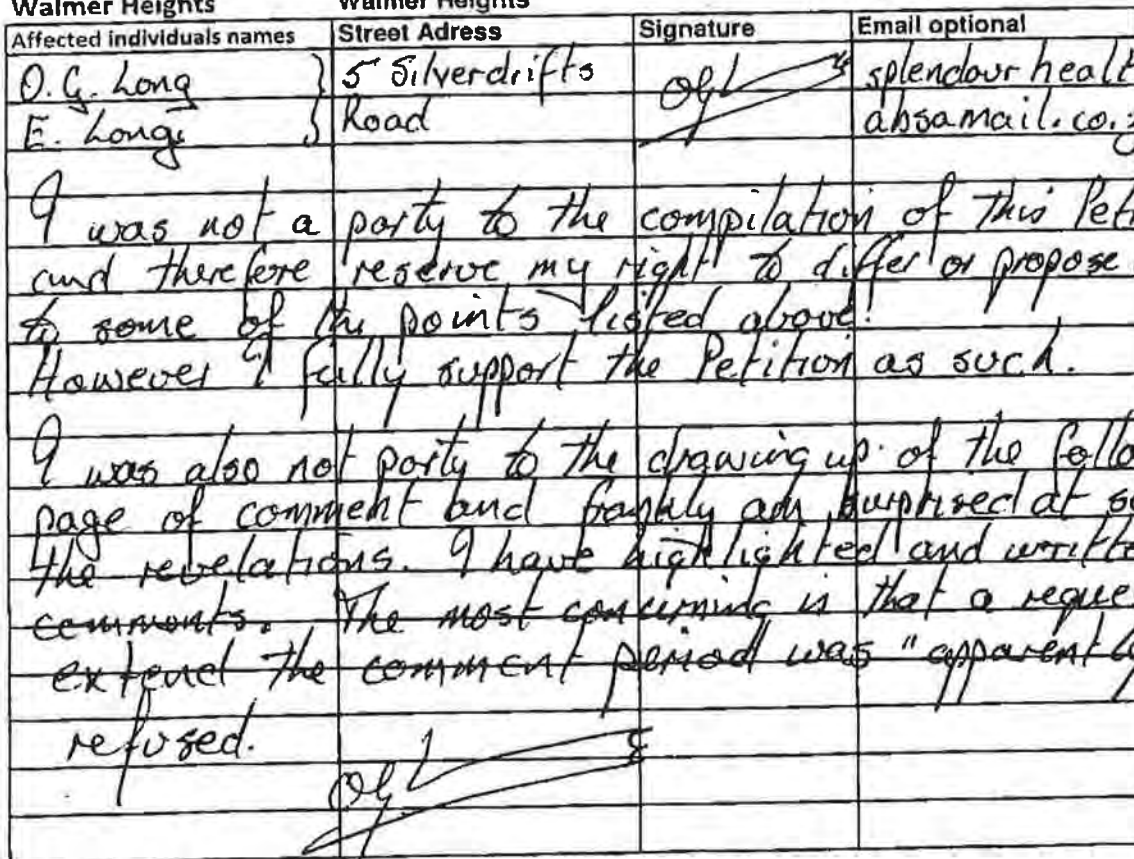 Walmer Heights Walmer Heights
Affected individuals names Street Adress Signature Email optional
O. G. Long 5 Silverdrifts splendour healt
E. Long Road absamail.co.z
I was not a party to the compilation of this Peti
and therefore reserve my right to differ or propose
to some of the points listed above!
However I fully support the Petition as such.
I was also not party to the drawing up of the follo
page of comment and frankly am surprised at so
the revelations. I have highlighted and writte
comments. The most concerning is that a reque
extend the comment period was "apparently
refused.